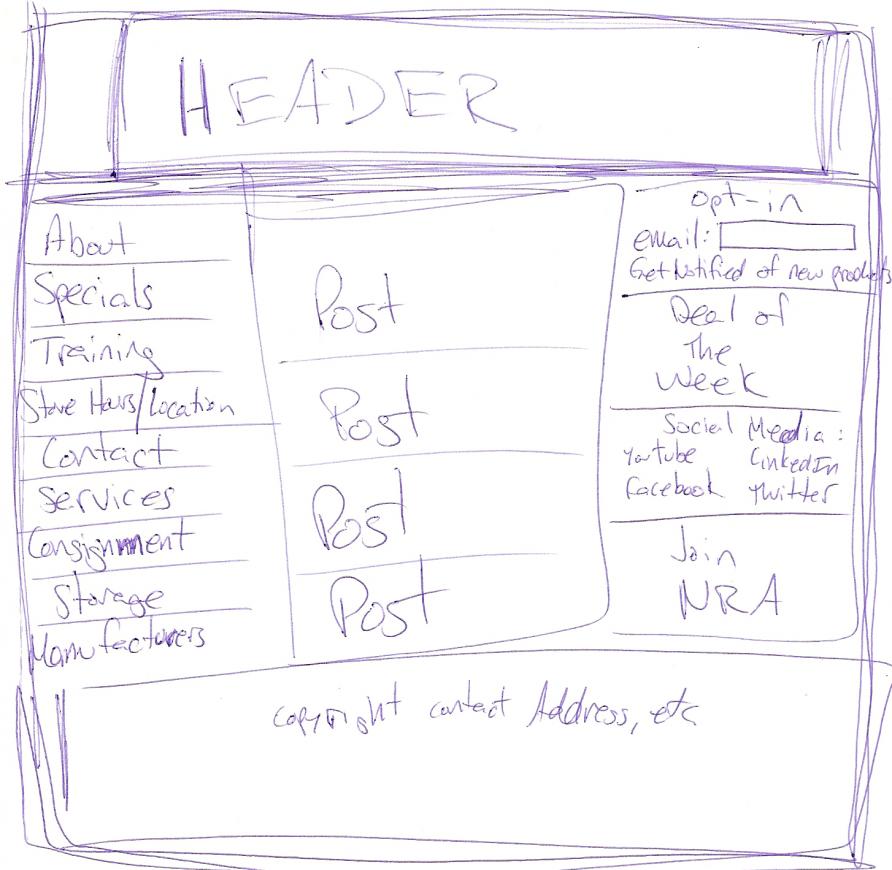 HEADER
About
Specials
Training
Store Hours/Location
Contact
Services
Consignment
Storage
Manufacturers
Post
Post
Post
Post
opt-in
email:
Get Notified of new products
Deal of
The
Week
Social Media:
Youtube LinkedIn
Facebook Twitter
Join
NRA
copyright contact Address, etc